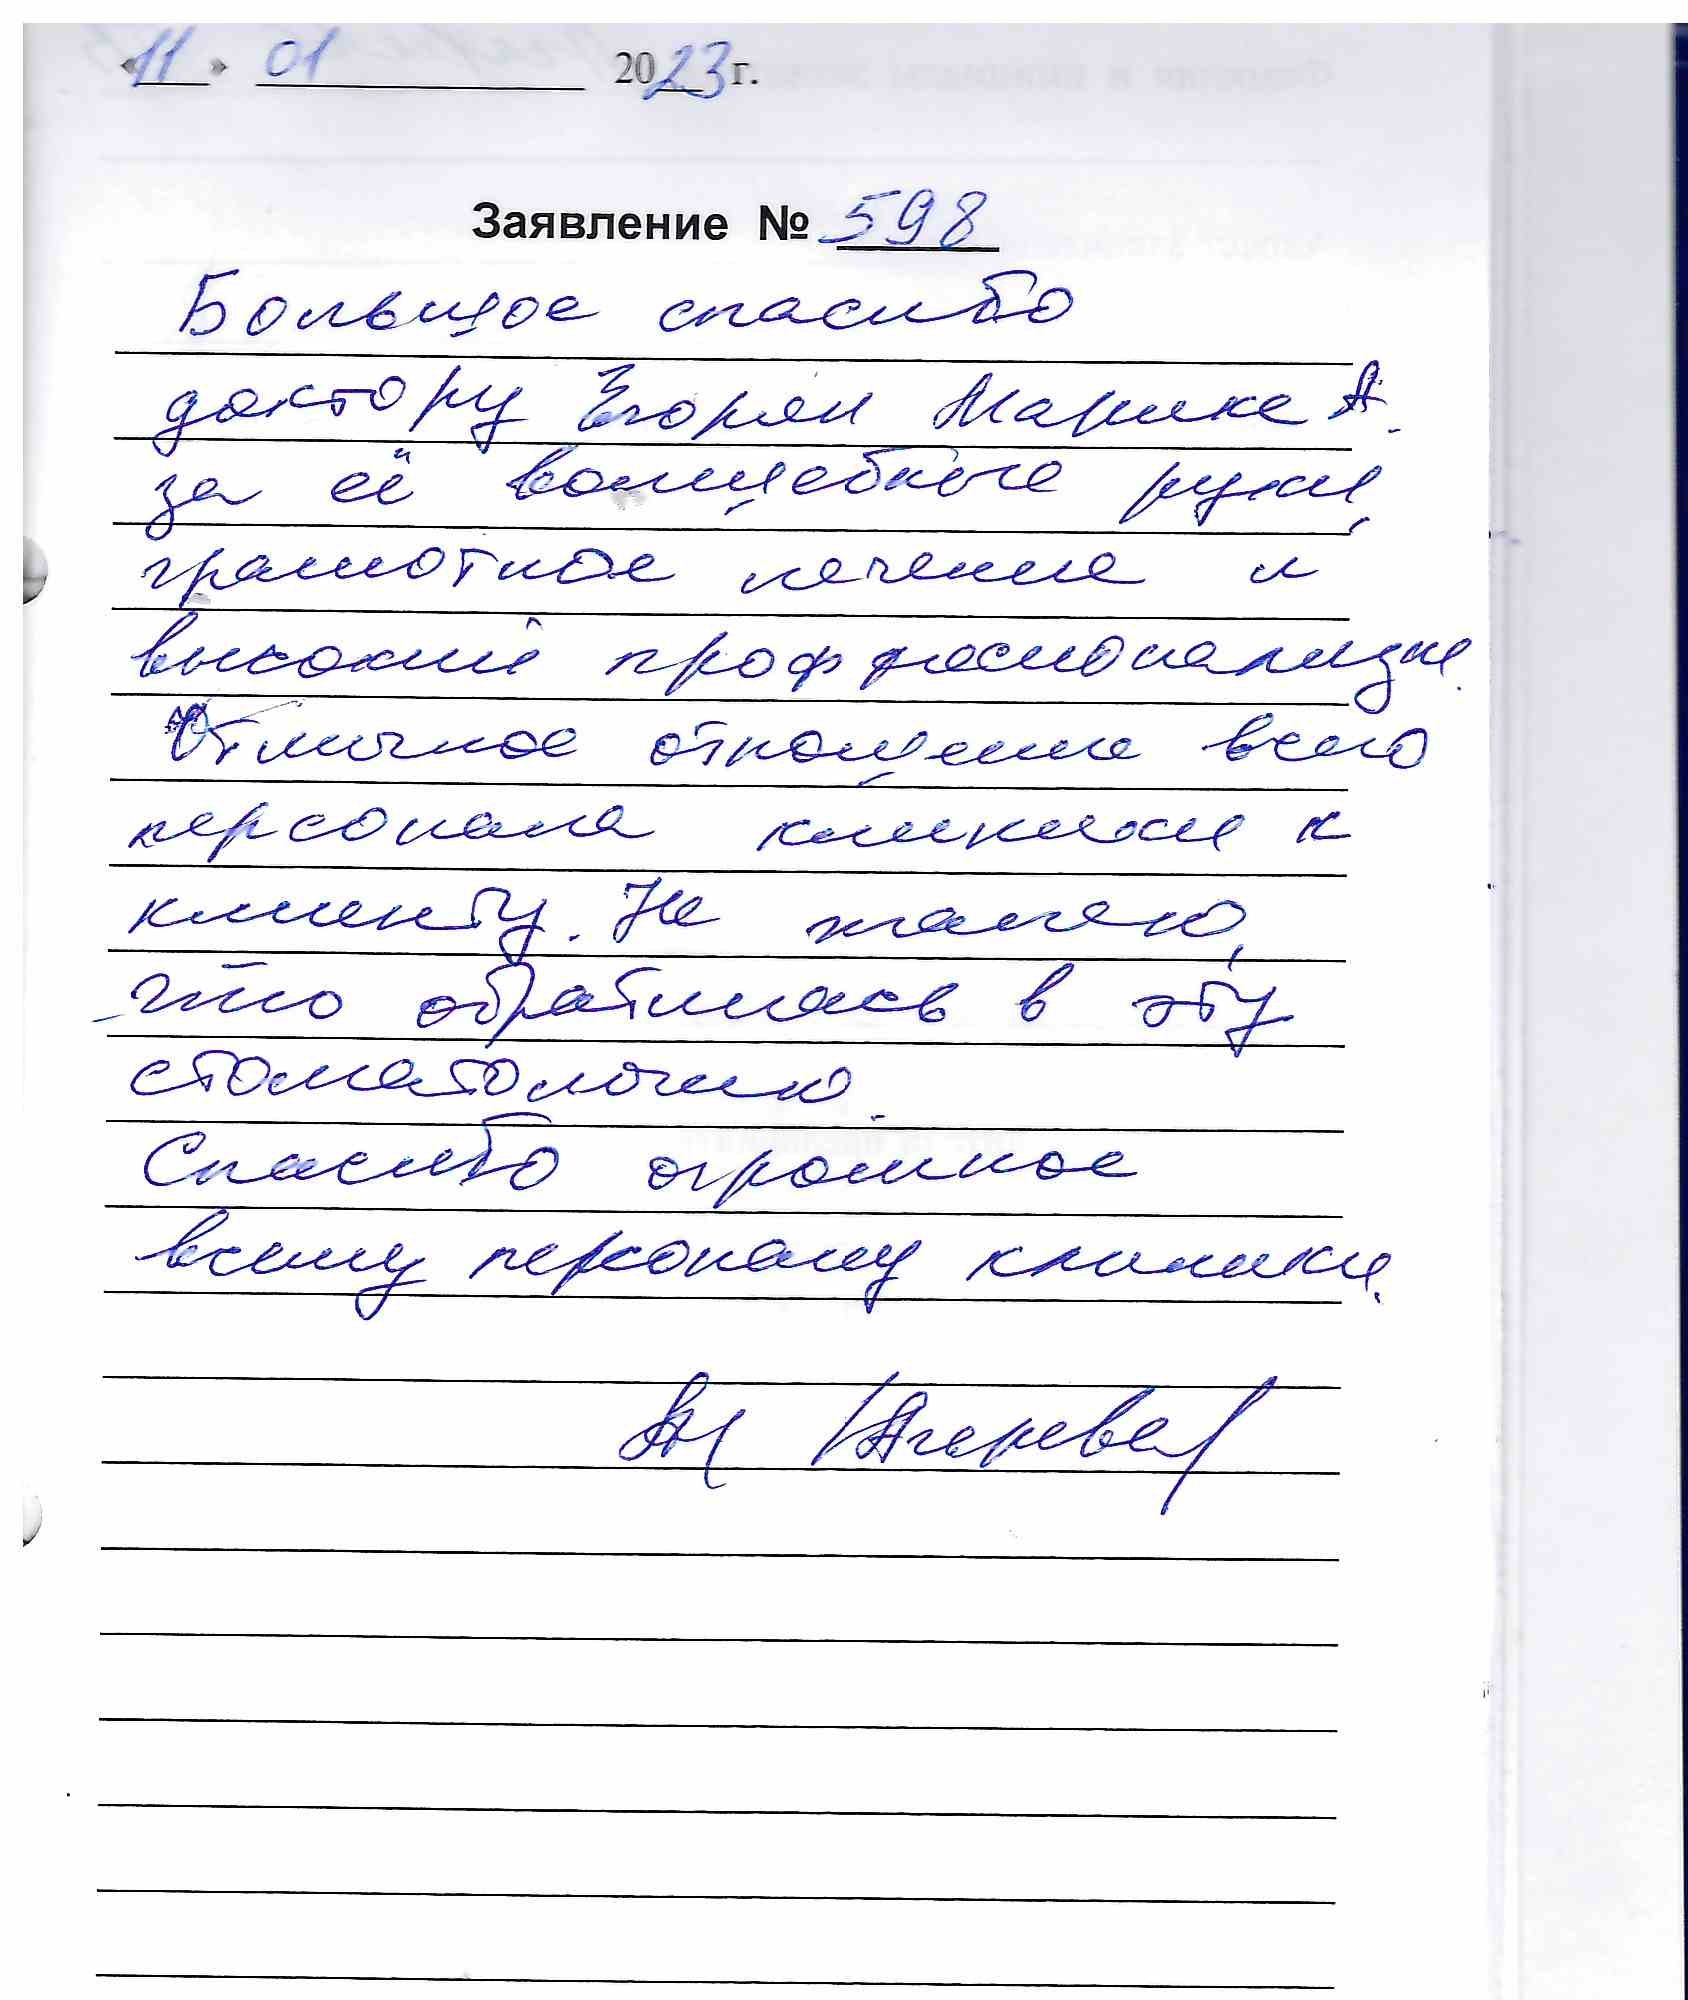 «11» 01 2023 г.
Заявление № 598
Большое спасибо
доктору Егорян Марине А.
за её волшебные руки,
грамотное лечение и
высокий профессионализм.
Отличное отношение всего
персонала клиники к
клиенту. Не жалею,
что обратилась в эту
стоматологию.
Спасибо огромное
всему персоналу клиники.